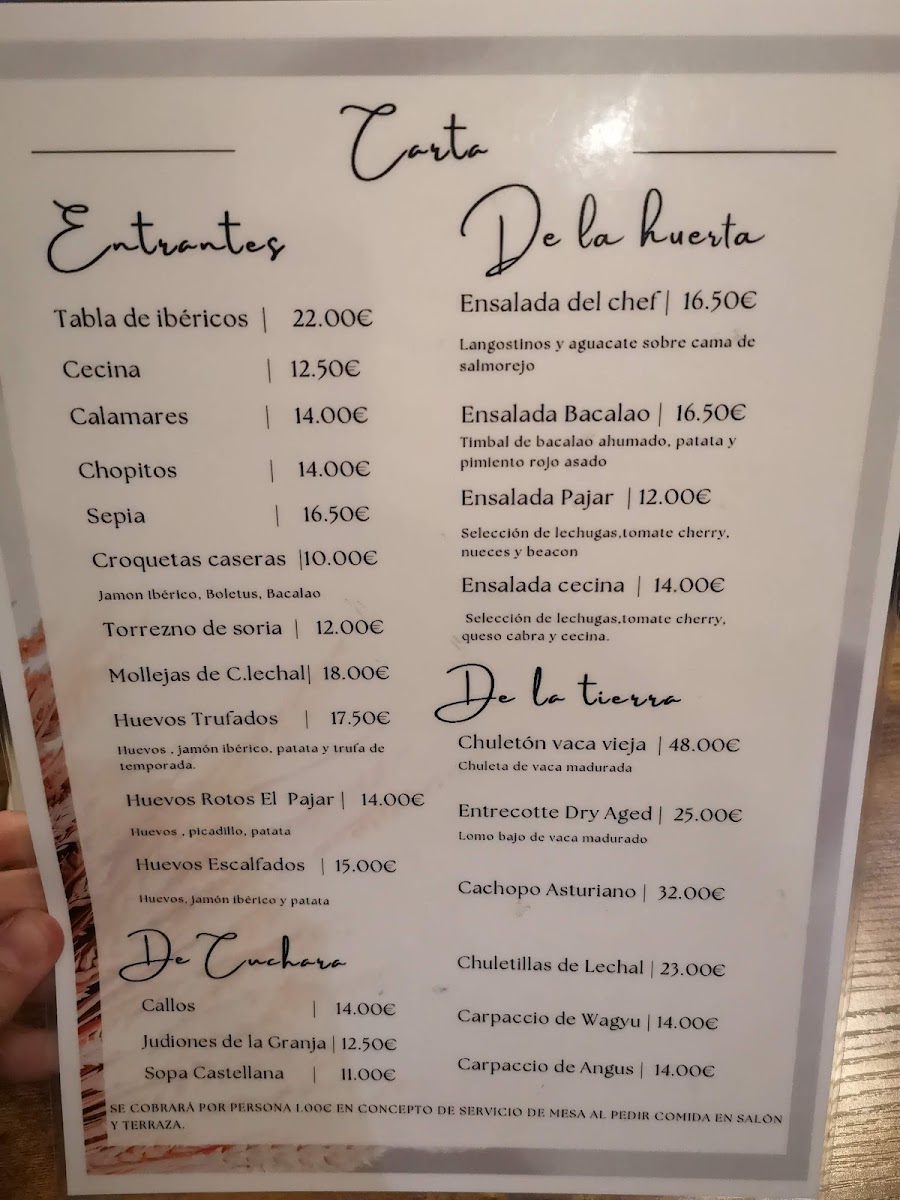 Carta
Entrantes
Tabla de ibéricos | 22.00€
Cecina | 12.50€
Calamares | 14.00€
Chopitos | 14.00€
Sepia | 16.50€
Croquetas caseras |10.00€
Jamon Ibérico, Boletus, Bacalao
Torrezno de soria | 12.00€
Mollejas de C.lechal| 18.00€
Huevos Trufados | 17.50€
Huevos , jamón ibérico, patata y trufa de
temporada.
Huevos Rotos El Pajar | 14.00€
Huevos , picadillo, patata
Huevos Escalfados | 15.00€
Huevos, jamón ibérico y patata
De Cuchara
Callos | 14.00€
Judiones de la Granja | 12.50€
Sopa Castellana | 11.00€
De la huerta
Ensalada del chef | 16.50€
Langostinos y aguacate sobre cama de
salmorejo
Ensalada Bacalao | 16.50€
Timbal de bacalao ahumado, patata y
pimiento rojo asado
Ensalada Pajar | 12.00€
Selección de lechugas,tomate cherry,
nueces y beacon
Ensalada cecina | 14.00€
Selección de lechugas,tomate cherry,
queso cabra y cecina.
De la tierra
Chuletón vaca vieja | 48.00€
Chuleta de vaca madurada
Entrecotte Dry Aged | 25.00€
Lomo bajo de vaca madurado
Cachopo Asturiano | 32.00€
Chuletillas de Lechal | 23.00€
Carpaccio de Wagyu | 14.00€
Carpaccio de Angus | 14.00€
SE COBRARÁ POR PERSONA 1.00€ EN CONCEPTO DE SERVICIO DE MESA AL PEDIR COMIDA EN SALÓN
Y TERRAZA.